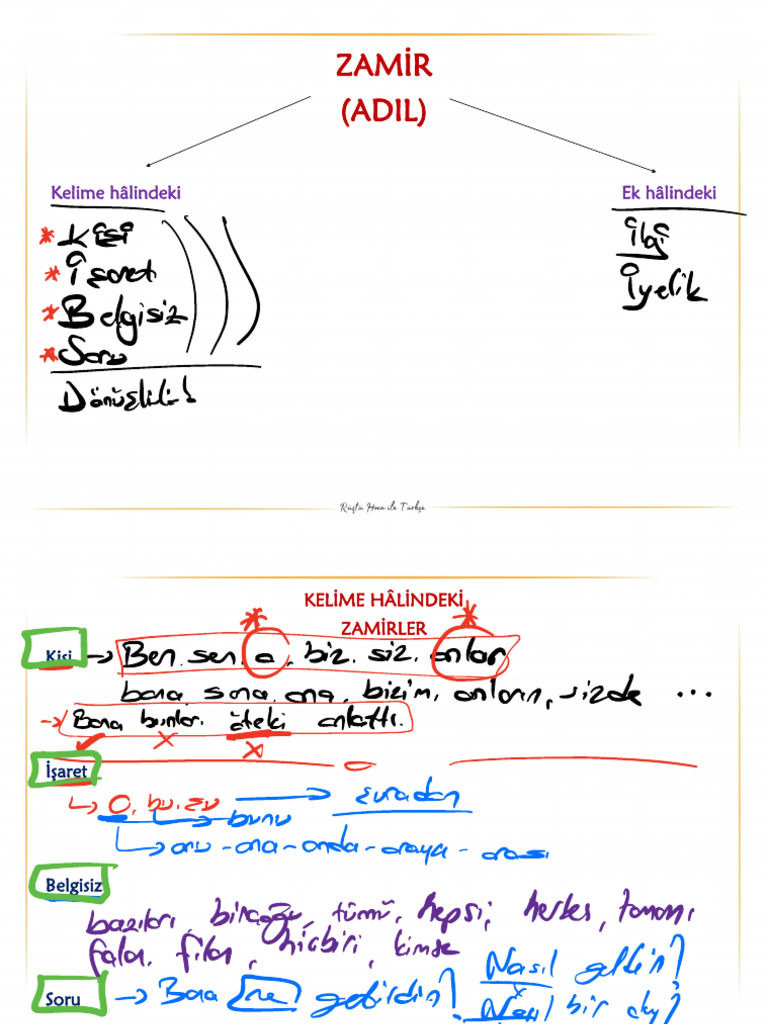 ZAMİR
(ADIL)
Kelime hâlindeki
Ek hâlindeki
* Kişi
* İşaret
* Belgisiz
* Soru
Dönüşlülük!
İlgi
İyelik
Rüştü Hoca ile Türkçe
KELİME HÂLİNDEKİ
ZAMİRLER
Kişi → Ben, sen, o, biz, siz, onlar
bana, sana, ona, bizim, onların, sizde ...
→ Bana bunları öteki anlattı.
İşaret
O, bu, şu → şuradan
→ bunu
→ onu - ona - onda - oraya - orası
Belgisiz
bazıları, birçoğu, tümü, hepsi, herkes, tamamı
falan, filan, hiçbiri, kimse
Soru → Bana ne getirdin? Nasıl geldin?
Nasıl bir